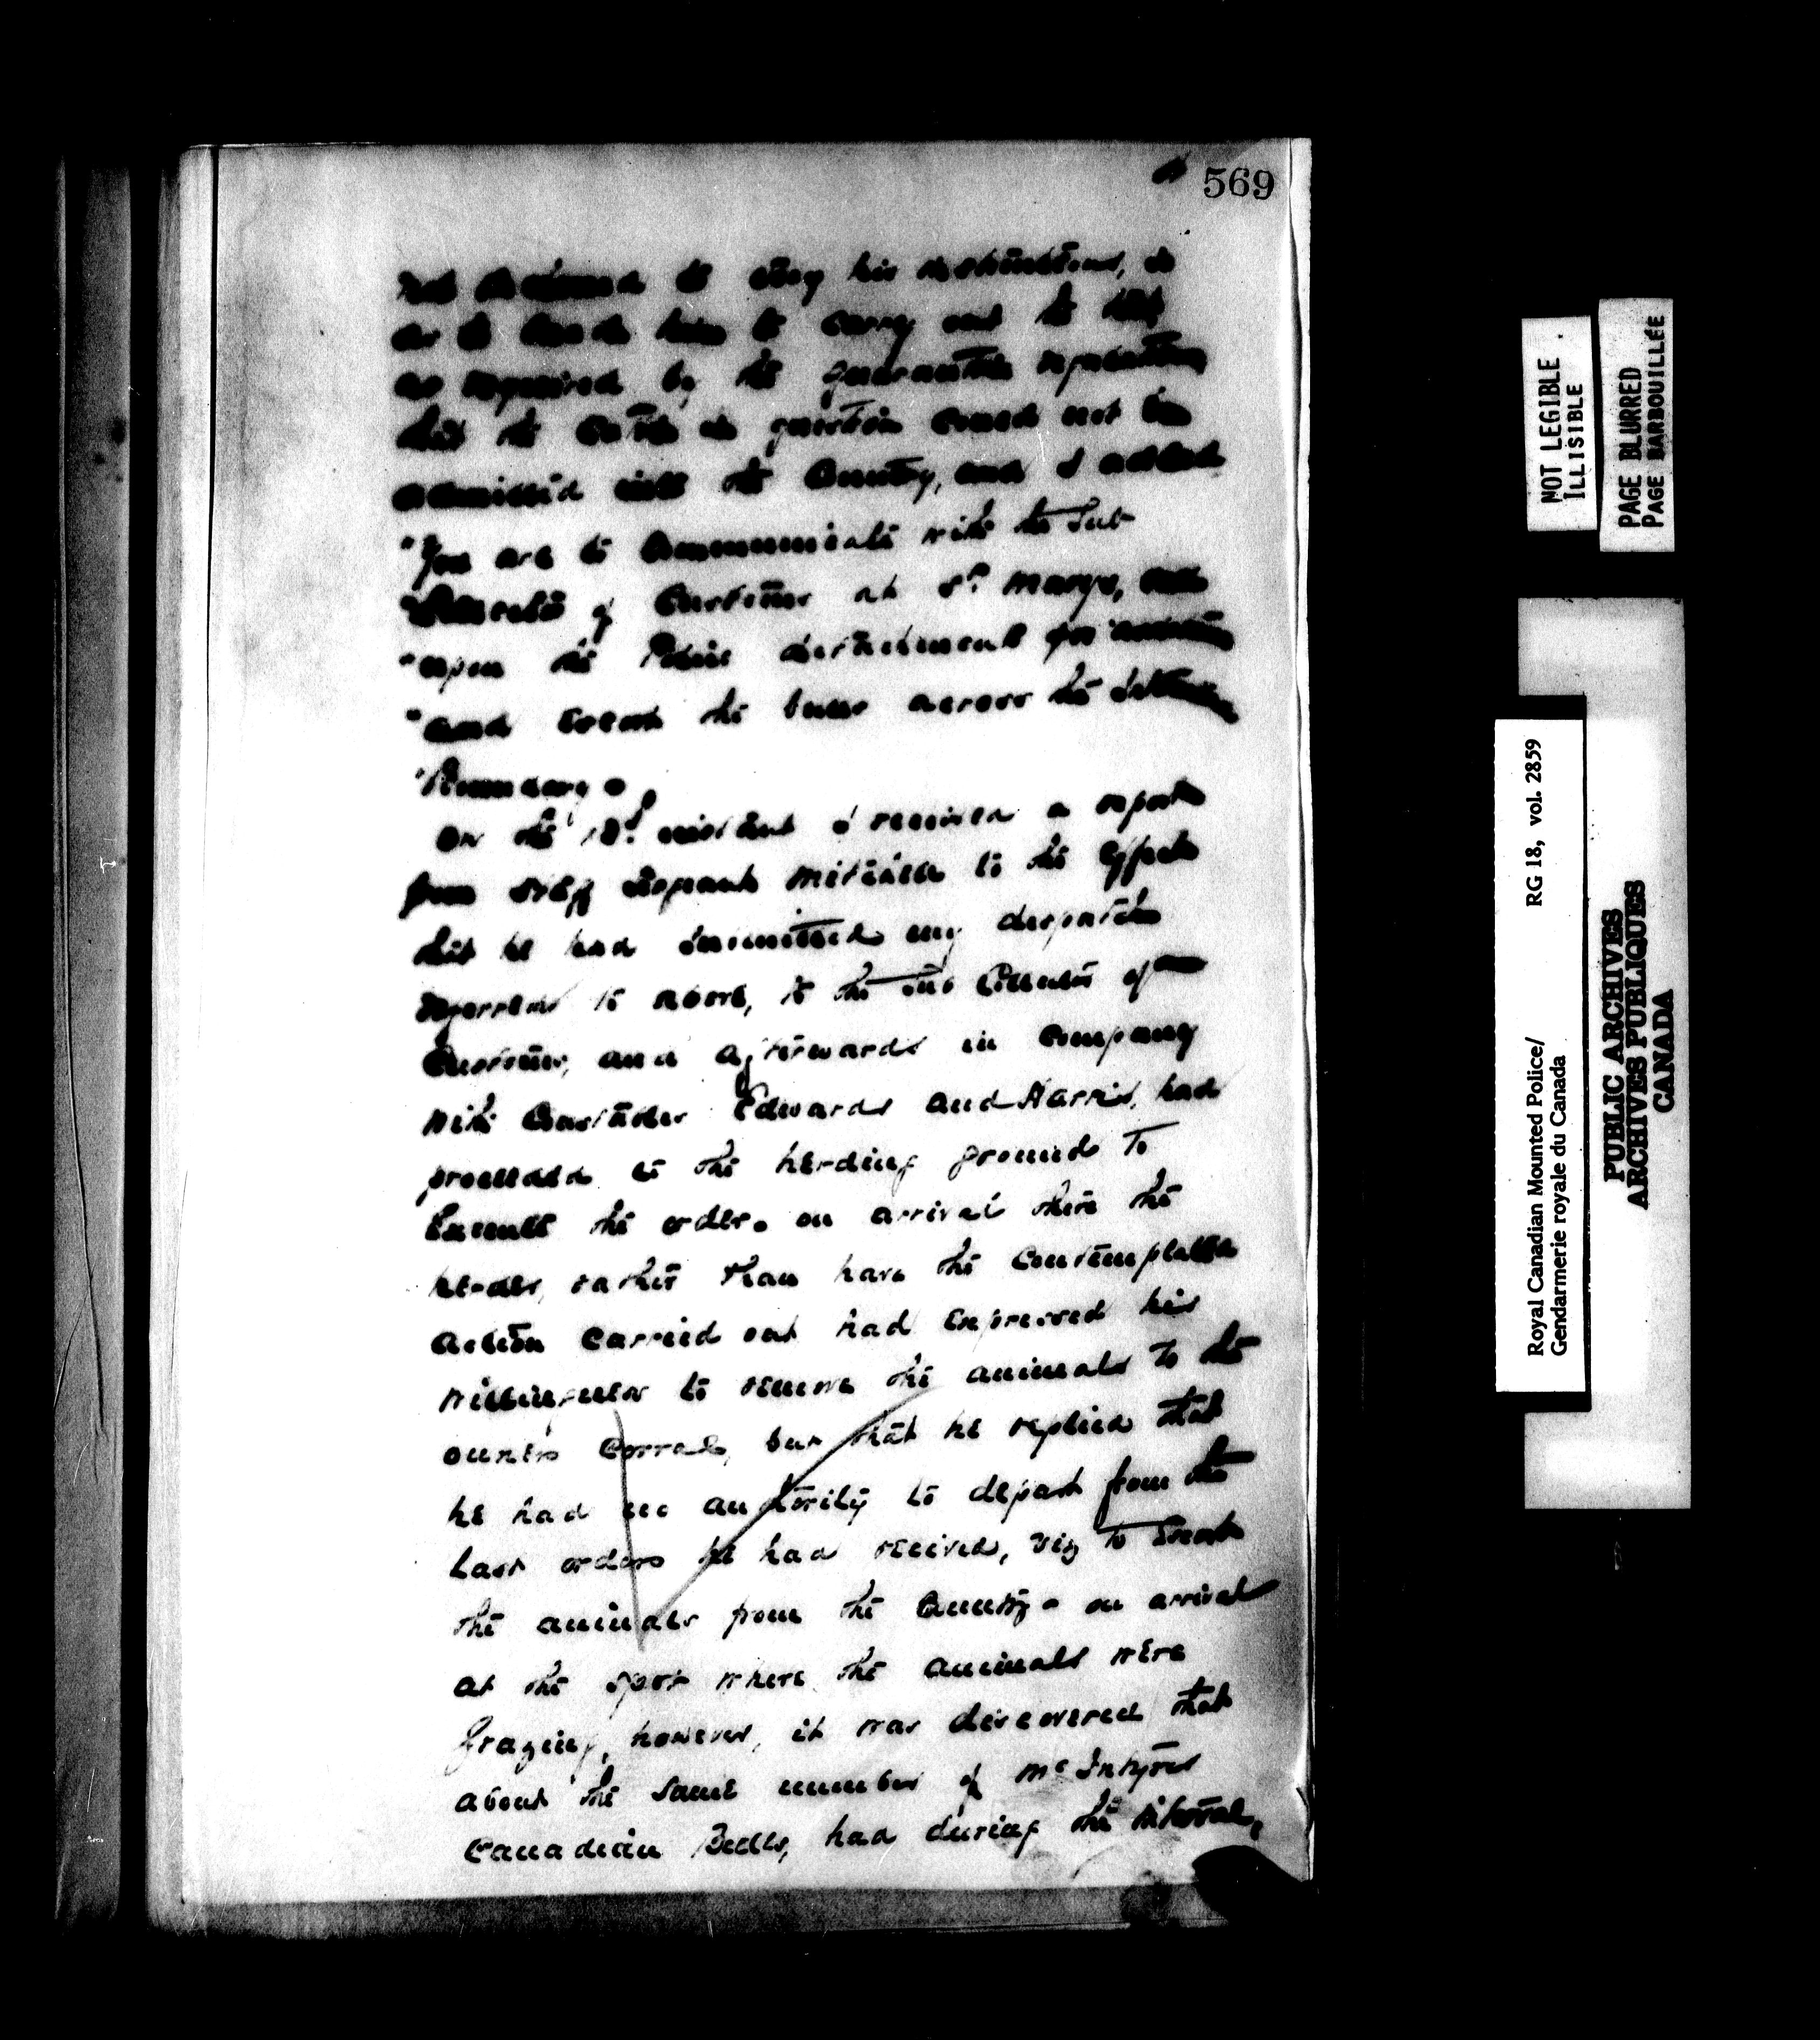 569
his instructions, so
as to him to carry out the
as required by the quarantine regulations
that the cattle in question could not be
admitted into the Country, and I added
"You are to communicate with the Sub-
"Collector of Customs at St. Marys, call
"upon the Police detachment for
"and the bulls across the
"Boundary.
On the instant I received a report
from Staff Sergeant to the effect
that he had submitted my despatch
referred to above, to the Sub Collector of
Customs, and afterwards in Company
with Constables Edwards and Harris, had
proceeded to the herding ground to
Execute the order. On arrival there the
herder, rather than have the Contemplated
action Carried out had Expressed his
willingness to remove the animals to the
owners Corral, but that he replied that
he had no authority to depart from the
last orders he had received, viz to
the animals from the Country - on arrival
at the spot where the animals were
Grazing, however, it was discovered that
about the same number of McIntyres
Canadian Bulls, had during the interval,
NOT LEGIBLE
ILLISIBLE
PAGE BLURRED
PAGE BARBOUILLÉE
Royal Canadian Mounted Police/ RG 18, vol. 2859
Gendarmerie royale du Canada
PUBLIC ARCHIVES
ARCHIVES PUBLIQUES
CANADA